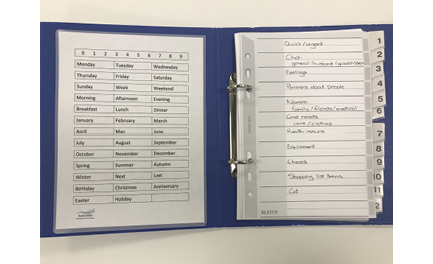 0 1 2 3 4 5 6 7 8 9
Monday Tuesday Wednesday
Thursday Friday Saturday
Sunday Week Weekend
Morning Afternoon Evening
Breakfast Lunch Dinner
January February March
April May June
July August September
October November December
Spring Summer Autumn
Winter Next Last
Birthday Christmas Anniversary
Easter Holiday
Quick/urgent 1
Chat: 2
general/
Feelings 3
Phrases about people 4
Names: 5
family/friends/medical 6
Care needs
Health issues 7
Equipment 8
Chores 9
Shopping list items 10
Cat 11
2